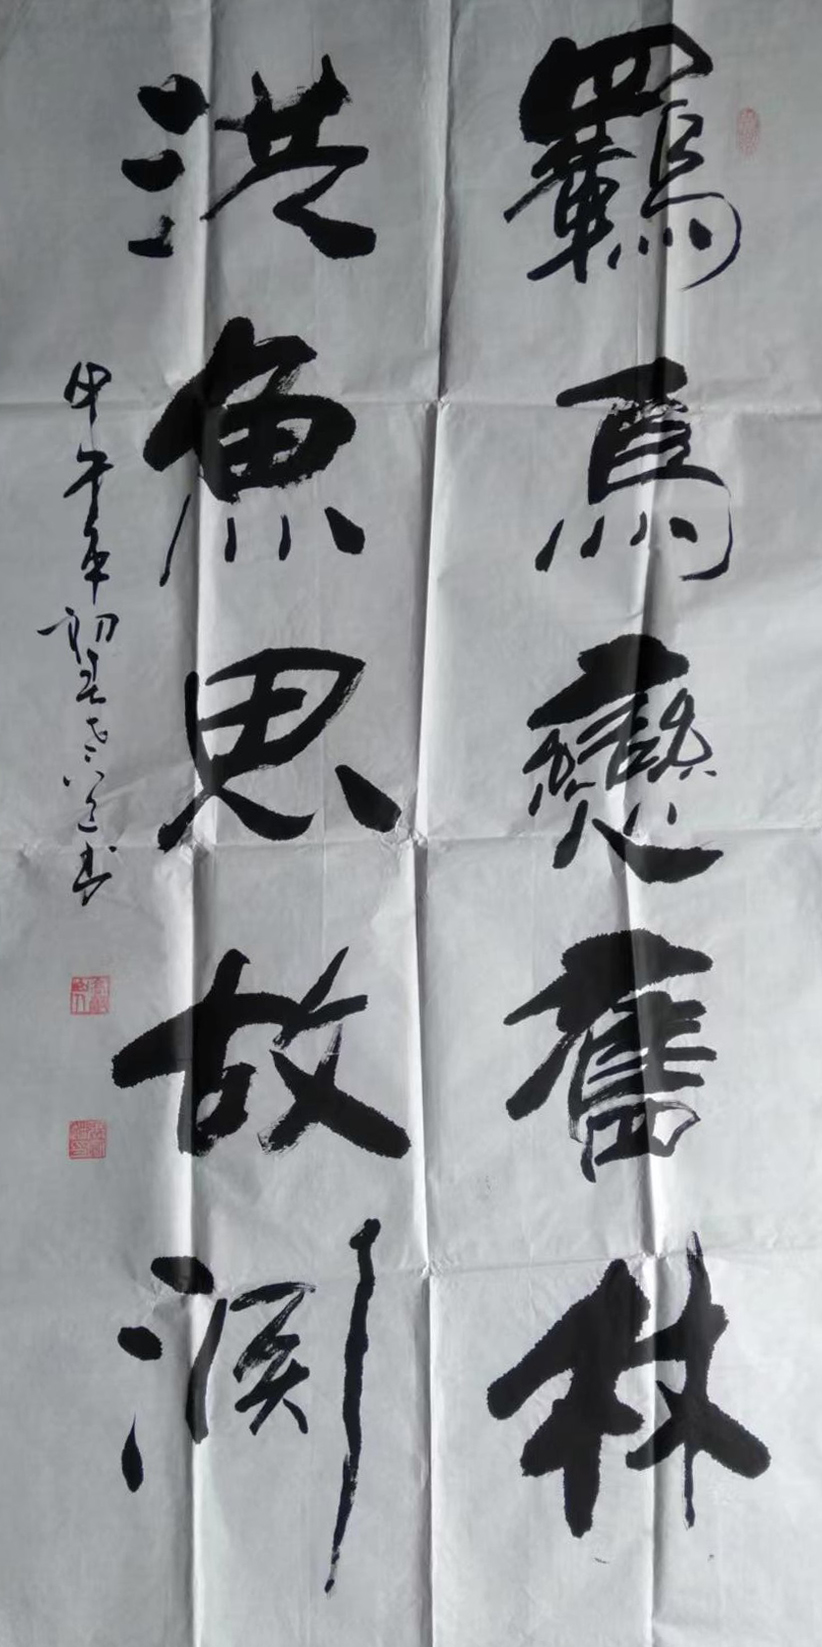 羈鳥戀舊林
洪魚思故淵
甲午年初春 书